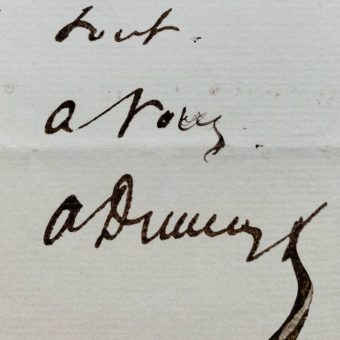 tout
a Vous
A Dumas